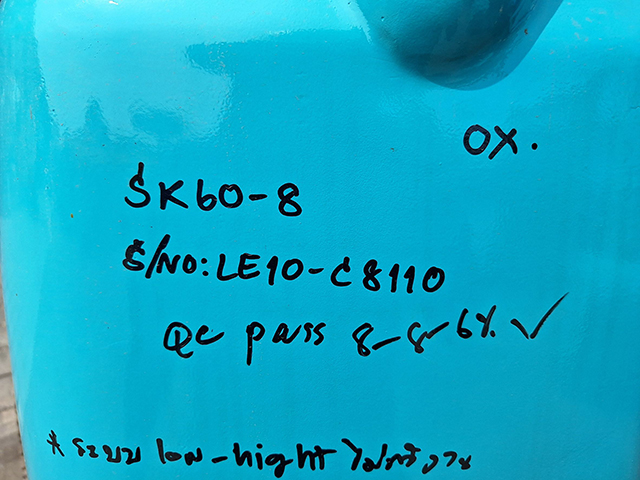 OX.
SK60-8
S/NO: LE10-C8110
QC pass 8-8-6x ✓
* ระบบ low-hight